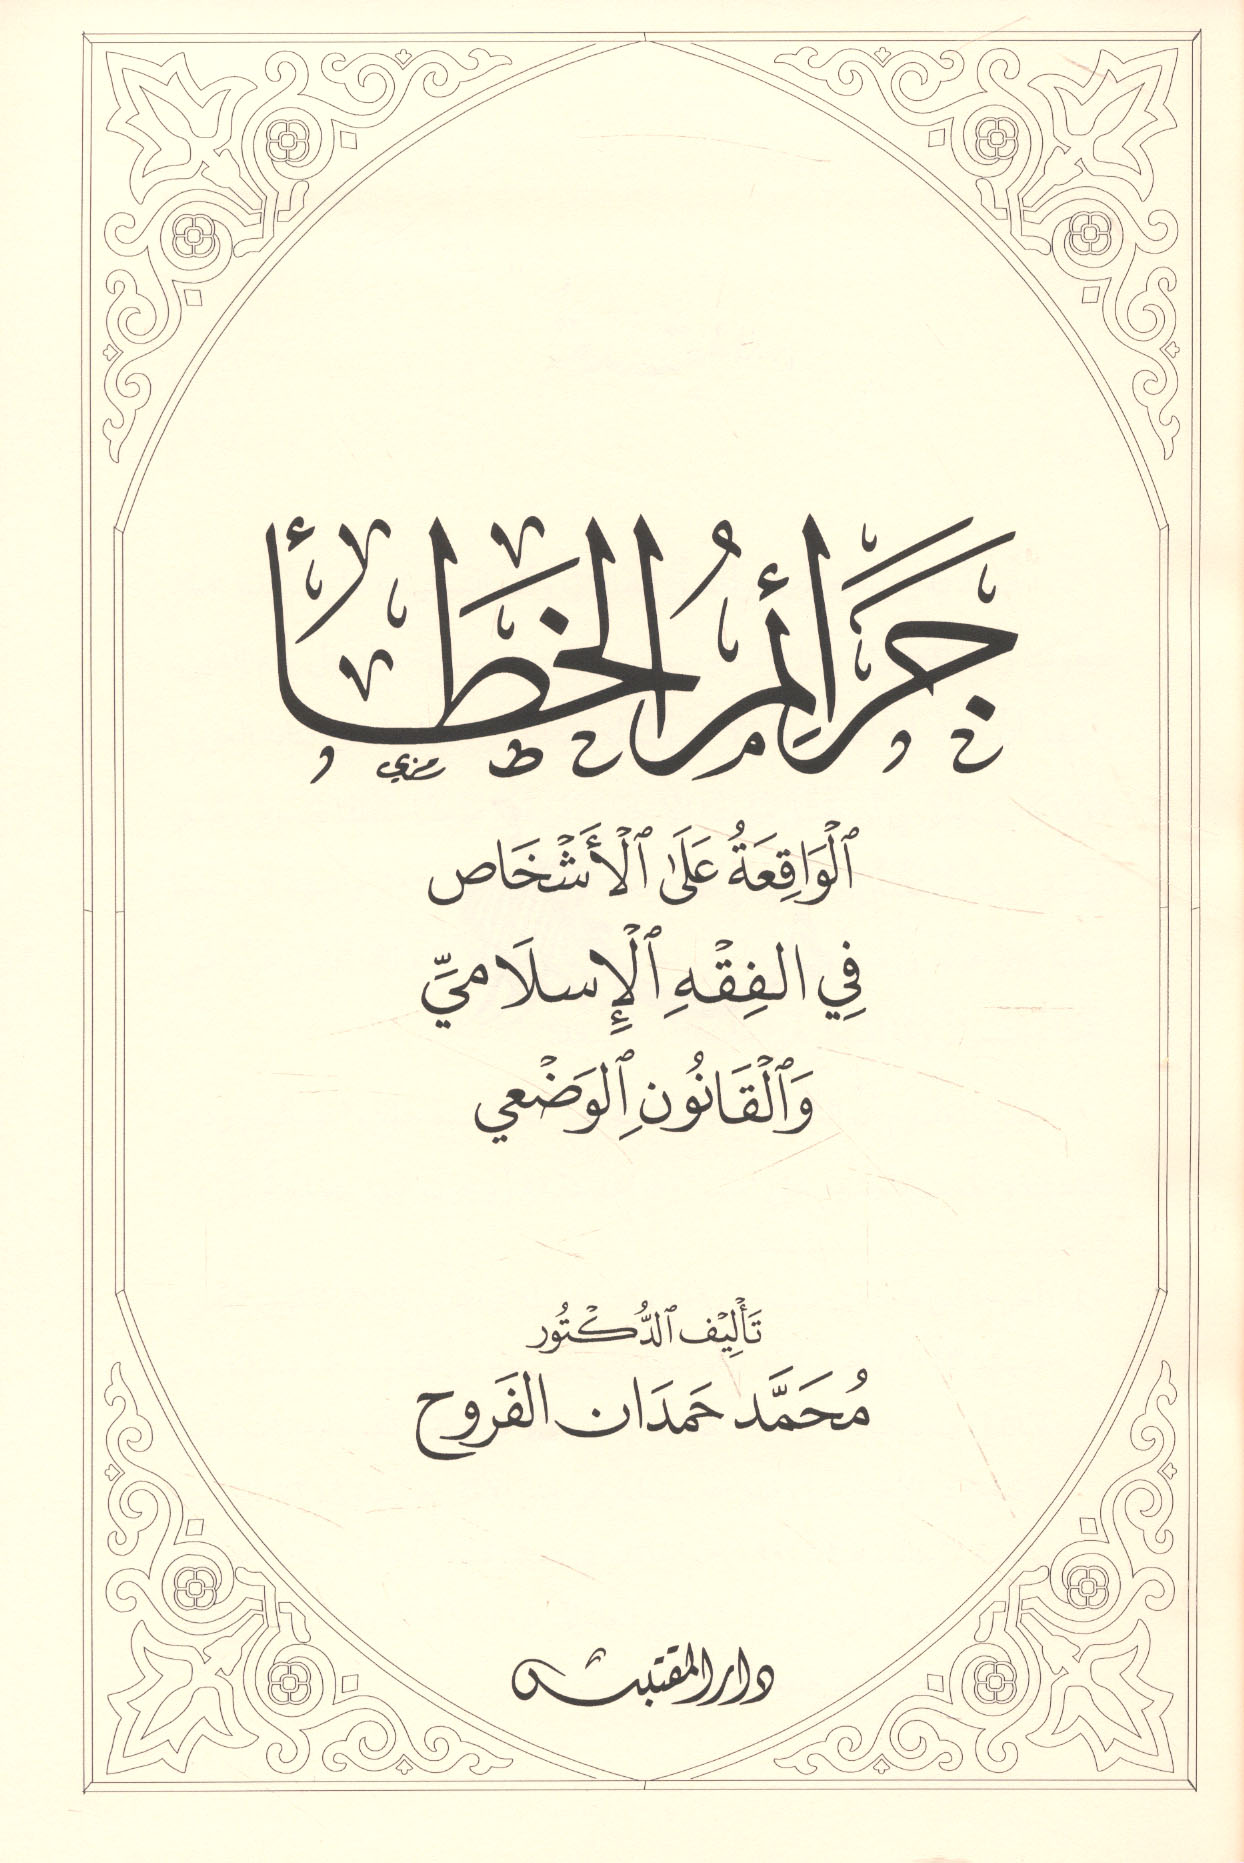 جَرَائِمُ الخَطَأ
ٱلْوَاقِعَةُ عَلَىٰ ٱلْأَشْخَاص
فِي الفِقْهِ ٱلْإِسلَاميِّ
وَٱلْقَانُونِ ٱلوَضْعي
تَأْلِيْف ٱلدُّكْتُور
مُحَمَّد حَمدَان الفَروح
دار المقتبس